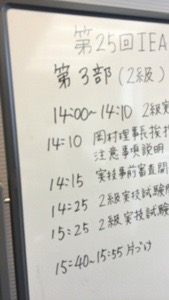 第25回IEA
第3部(2級)
14:00～14:10 2級実
14:10 岡村理事長挨
注意事項説明
14:15 実技事前審査開
14:25 2級実技試験
15:25 2級実技試験
15:40～15:55 片づけ